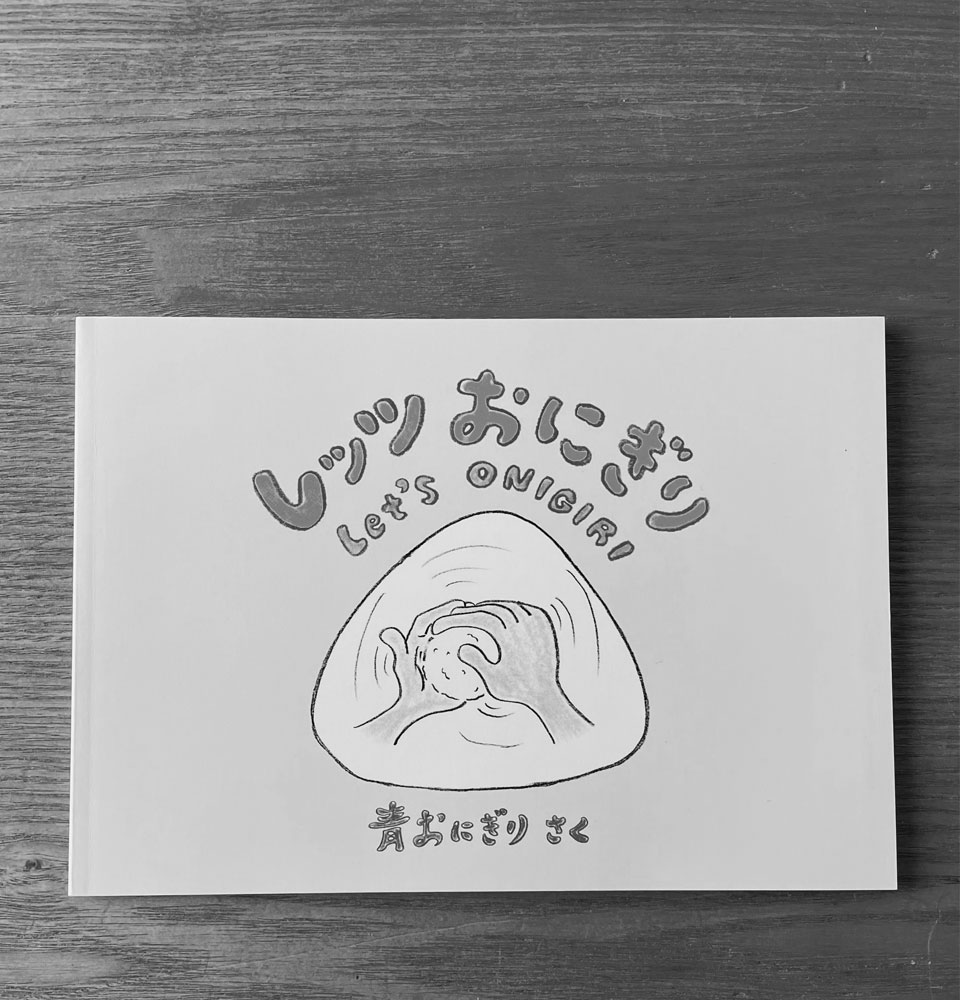 レッツ おにぎり
Let's ONIGIRI
青おにぎり さく